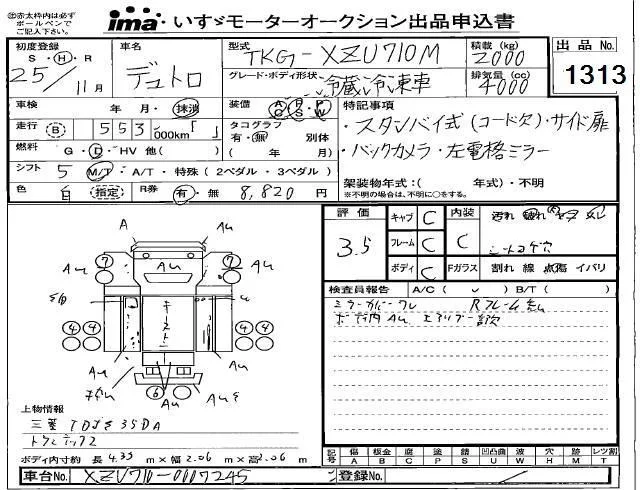 ㊟赤太枠内は必ず
ボールペンで
ご記入下さい。
ima・いすゞモーターオークション出品申込書
初度登録 車名 型式 積載(kg) 出品No.
S・H・R
25/11月 デュトロ TKG-XZU710M 2000 1313
グレード・ボディ形状 冷蔵冷凍車 排気量(cc) 4000
車検 年 月・抹消 装備 A P P C S W 特記事項
走行 B 553,000km「 」 タコグラフ 有・無 別体 ・スタンバイ式(コード欠)・サイド扉
燃料 G・D・HV 他( ) ( 年 月) ・バックカメラ・左電格ミラー
シフト 5 M/T・A/T・特殊(2ペダル・3ペダル) 架装物年式:( 年式)・不明
色 白 (指定) R券 有・無 8,820円 ※架装物年式が、不明時に○をする。
評価 3.5 キャブ C 内装 C 汚れ 破れ コゲ ヌレ
フレーム C シートコゲ穴
ボディ C Fガラス 割れ 線 点傷 イバリ
検査員報告 A/C( ) B/T( )
ミラーカバーワレ Rフレーム
A Au
7 7
Au Au Au
キズスト
4 4 4 4
Au Au
6
Au Au
上物情報
三菱 TDJS35DA
ボディ内寸約 長4.33m×幅2.06m×高2.06m
記号 傷 A 板金 B 腐 C 塗 P 錆 S 凹凸曲 U 波 W 穴 H 跡 M レツ割 T
車台No. XZU710-0007245 登録No.( )